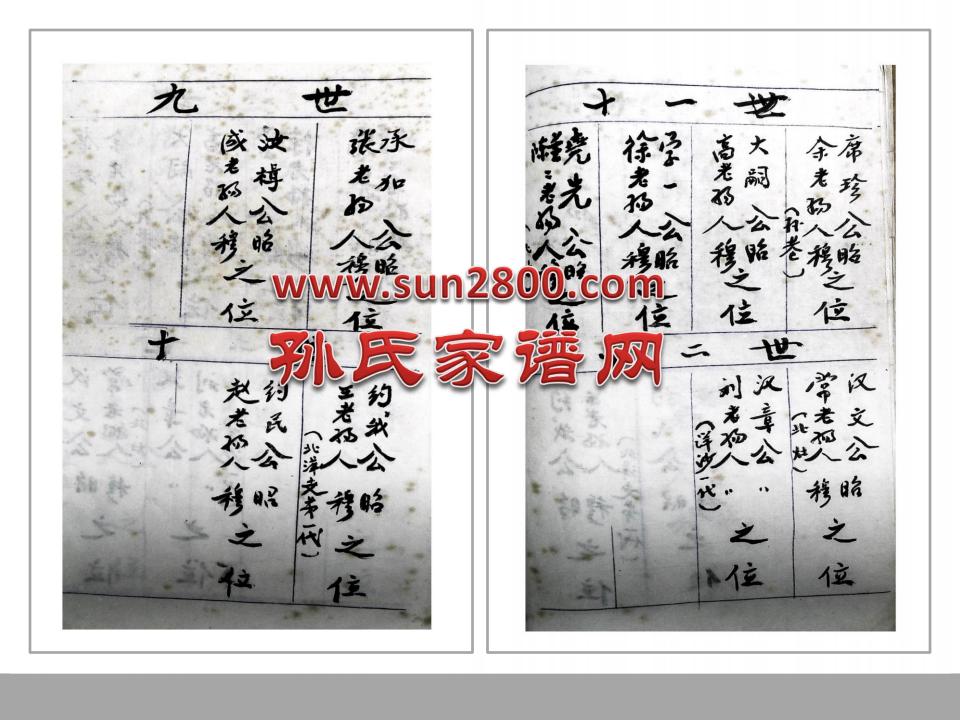 世 九
承加公昭
张老孺人穆之位
汝樟公昭
成老孺人穆之位
十
约我公昭
王老孺人穆之位
(北洋支第一代)
约民公昭
赵老孺人穆之位
世一十
席珍公昭
余老孺人穆之位
(孙巷)
大嗣公昭
高老孺人穆之位
学一公昭
徐老孺人穆之位
尧光公昭
老孺人
位
世二
汉文公昭
常老孺人穆之位
(北灶)
汉章公〃
刘老孺人〃之位
(洋沙一代)
www.sun2800.com
孙氏家谱网